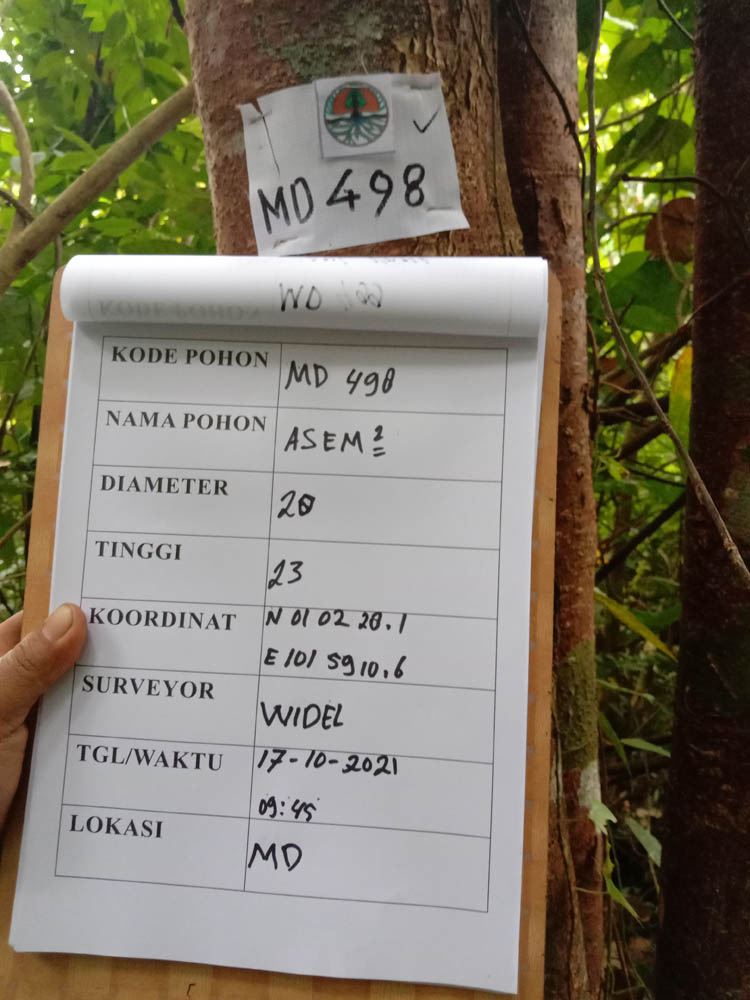 MD 498
KODE POHON MD 498
NAMA POHON ASEM2
DIAMETER 20
TINGGI 23
KOORDINAT N 01 02 20.1
E 101 59 10.6
SURVEYOR WIDEL
TGL/WAKTU 17-10-2021
09:45
LOKASI MD